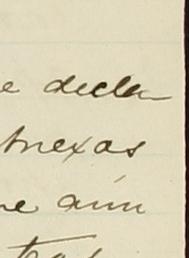 e decla
Anexas
ne aún